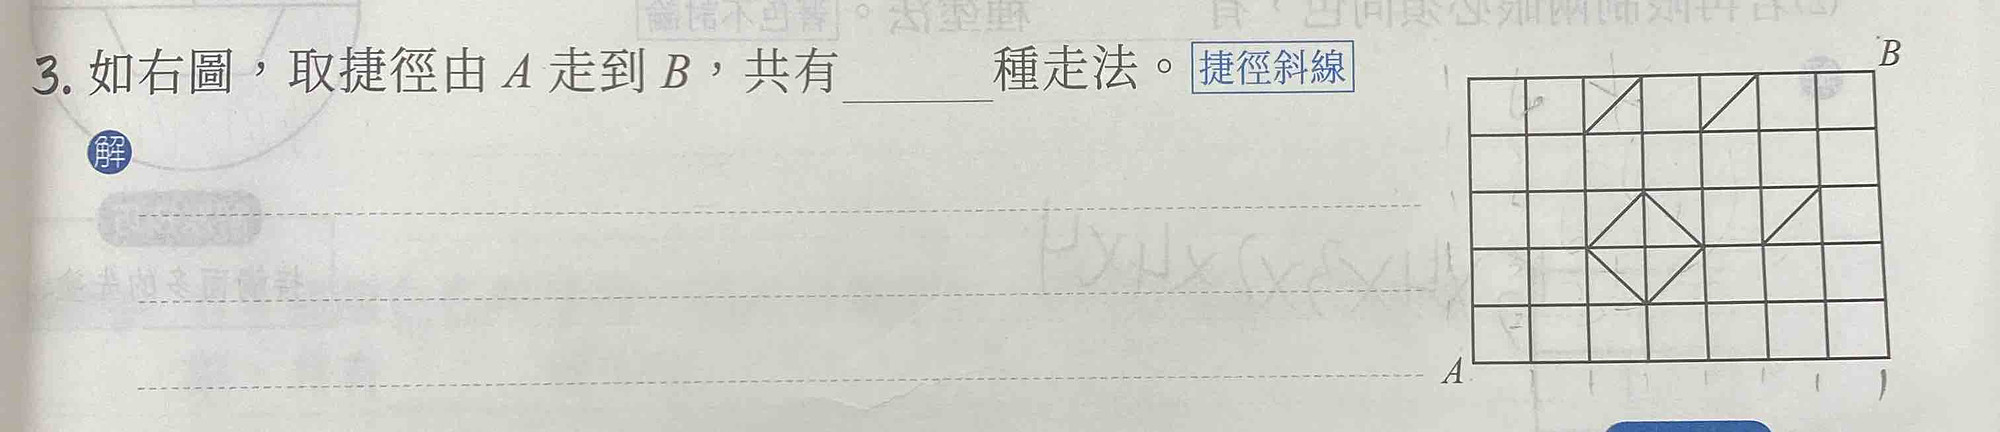 3. 如右圖，取捷徑由 A 走到 B，共有______種走法。 捷徑斜線
B
解
A